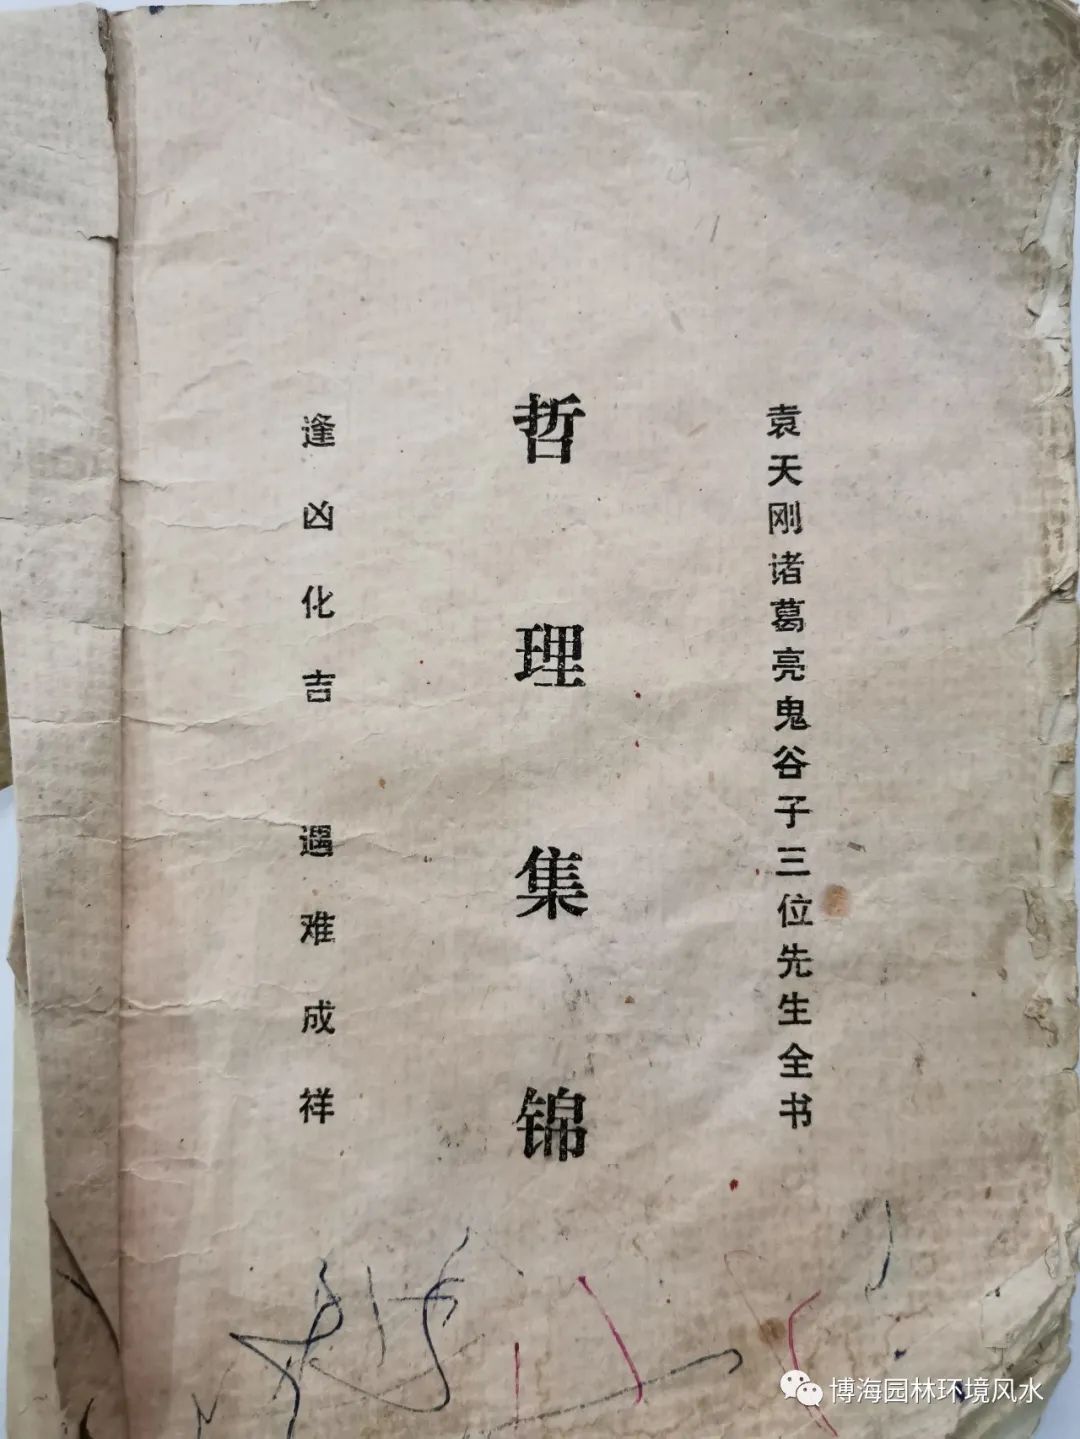 袁天刚诸葛亮鬼谷子三位先生全书
哲理集锦
逢凶化吉 遇难成祥
博海园林环境风水